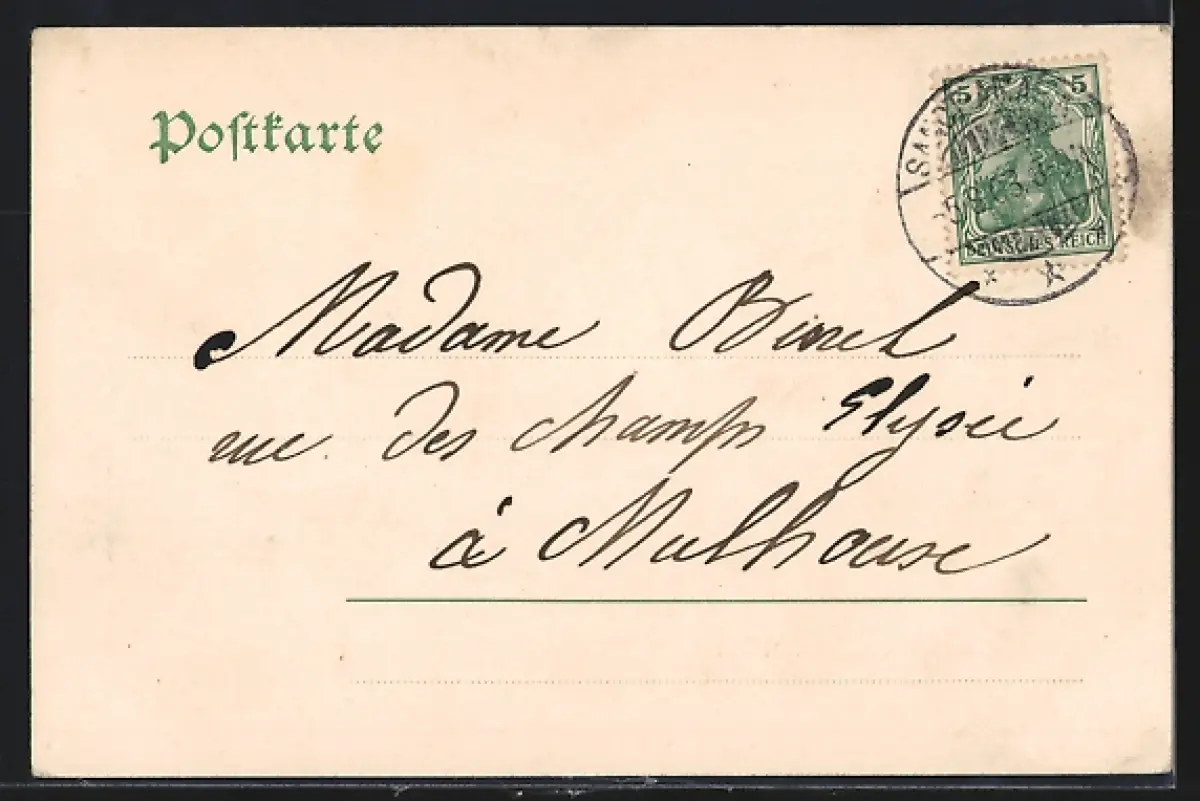 Postkarte
5 5
DEUTSCHES REICH
Madame
rue des champs Elysée
à Mulhouse